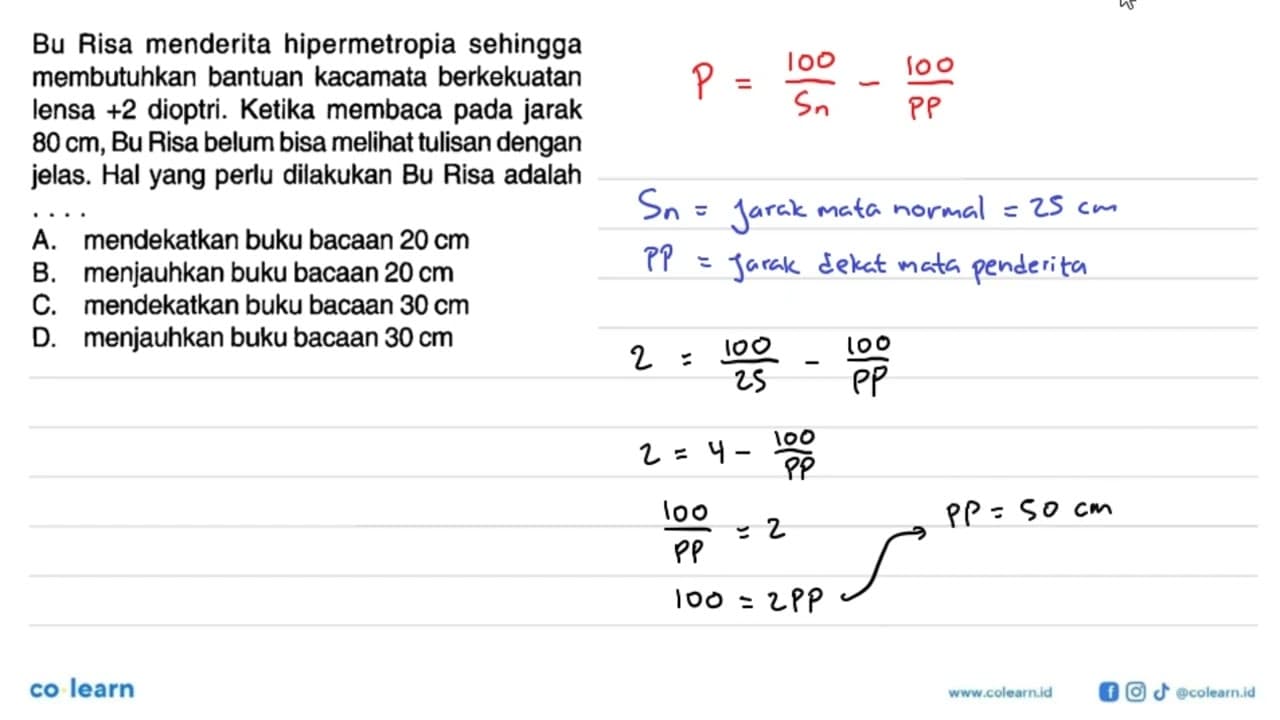 Bu Risa menderita hipermetropia sehingga
membutuhkan bantuan kacamata berkekuatan
lensa +2 dioptri. Ketika membaca pada jarak
80 cm, Bu Risa belum bisa melihat tulisan dengan
jelas. Hal yang perlu dilakukan Bu Risa adalah
....
A. mendekatkan buku bacaan 20 cm
B. menjauhkan buku bacaan 20 cm
C. mendekatkan buku bacaan 30 cm
D. menjauhkan buku bacaan 30 cm
P = 100/Sn - 100/PP
Sn = Jarak mata normal = 25 cm
PP = Jarak dekat mata penderita
2 = 100/25 - 100/PP
2 = 4 - 100/PP
100/PP = 2
100 = 2PP
PP = 50 cm
co learn
www.colearn.id
@colearn.id